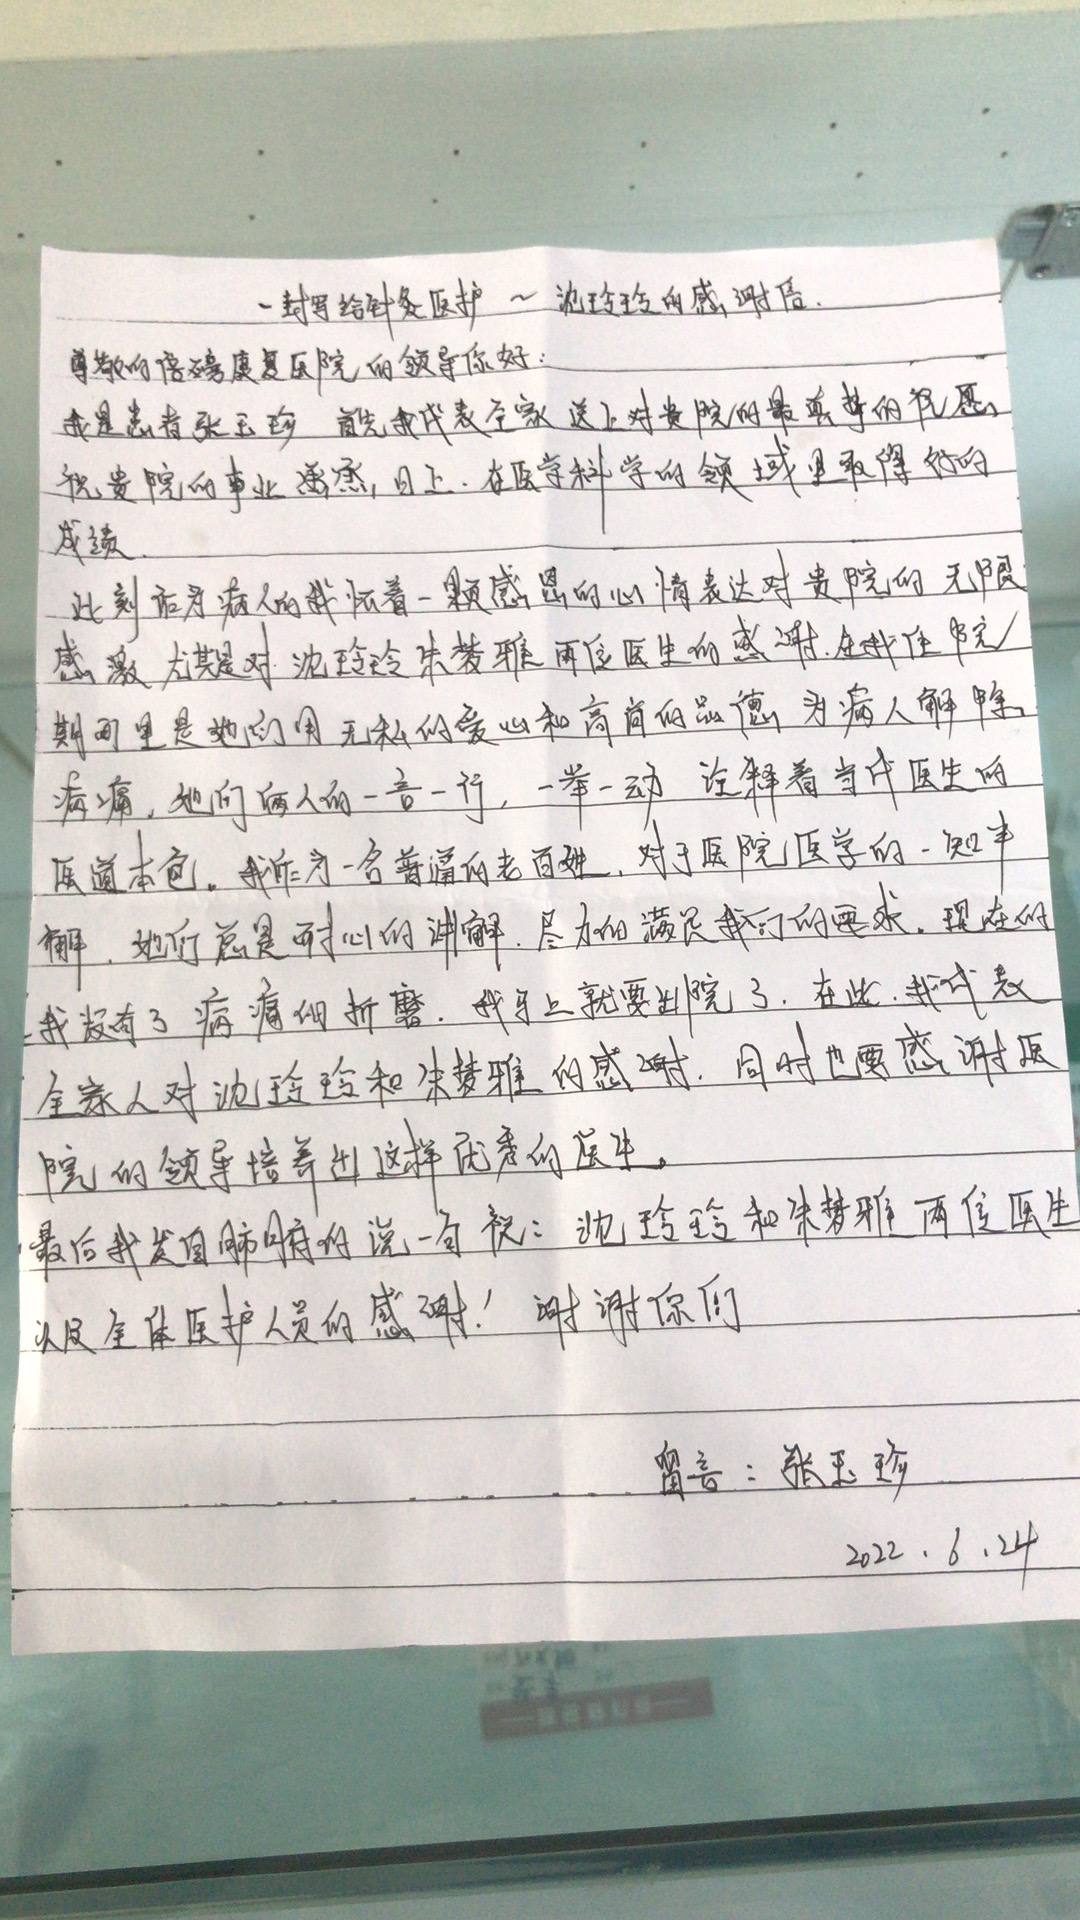 一封写给针灸医护～沈玲玲的感谢信.
尊敬的倍磅康复医院的领导你好：
我是患者张玉珍 首先我代表全家送上对贵院的最真挚的祝愿
祝贵院的事业蒸蒸日上.在医学科学的领域里取得好的
成绩.
此刻活为病人的我怀着一颗感恩的心情表达对贵院的无限
感激 尤其是对沈玲玲朱梦雅两位医生的感谢.在我住院
期间里是她们用无私的爱心和高尚的品德 为病人解除
病痛，她们俩人的一言一行，一举一动 诠释着当代医生的
医道本色。我作为一名普通的老百姓.对于医院医学的一知半
解.她们总是耐心的讲解.尽力的满足我们的要求.现在的
我没有了病痛的折磨.我马上就要出院了.在此.我代表
全家人对沈玲玲和朱梦雅的感谢.同时也要感谢医
院的领导培养出这样优秀的医生。
最后我发自肺腑的说一句祝：沈玲玲和朱梦雅两位医生
以及全体医护人员的感谢！谢谢你们
留言：张玉珍
2022.6.24